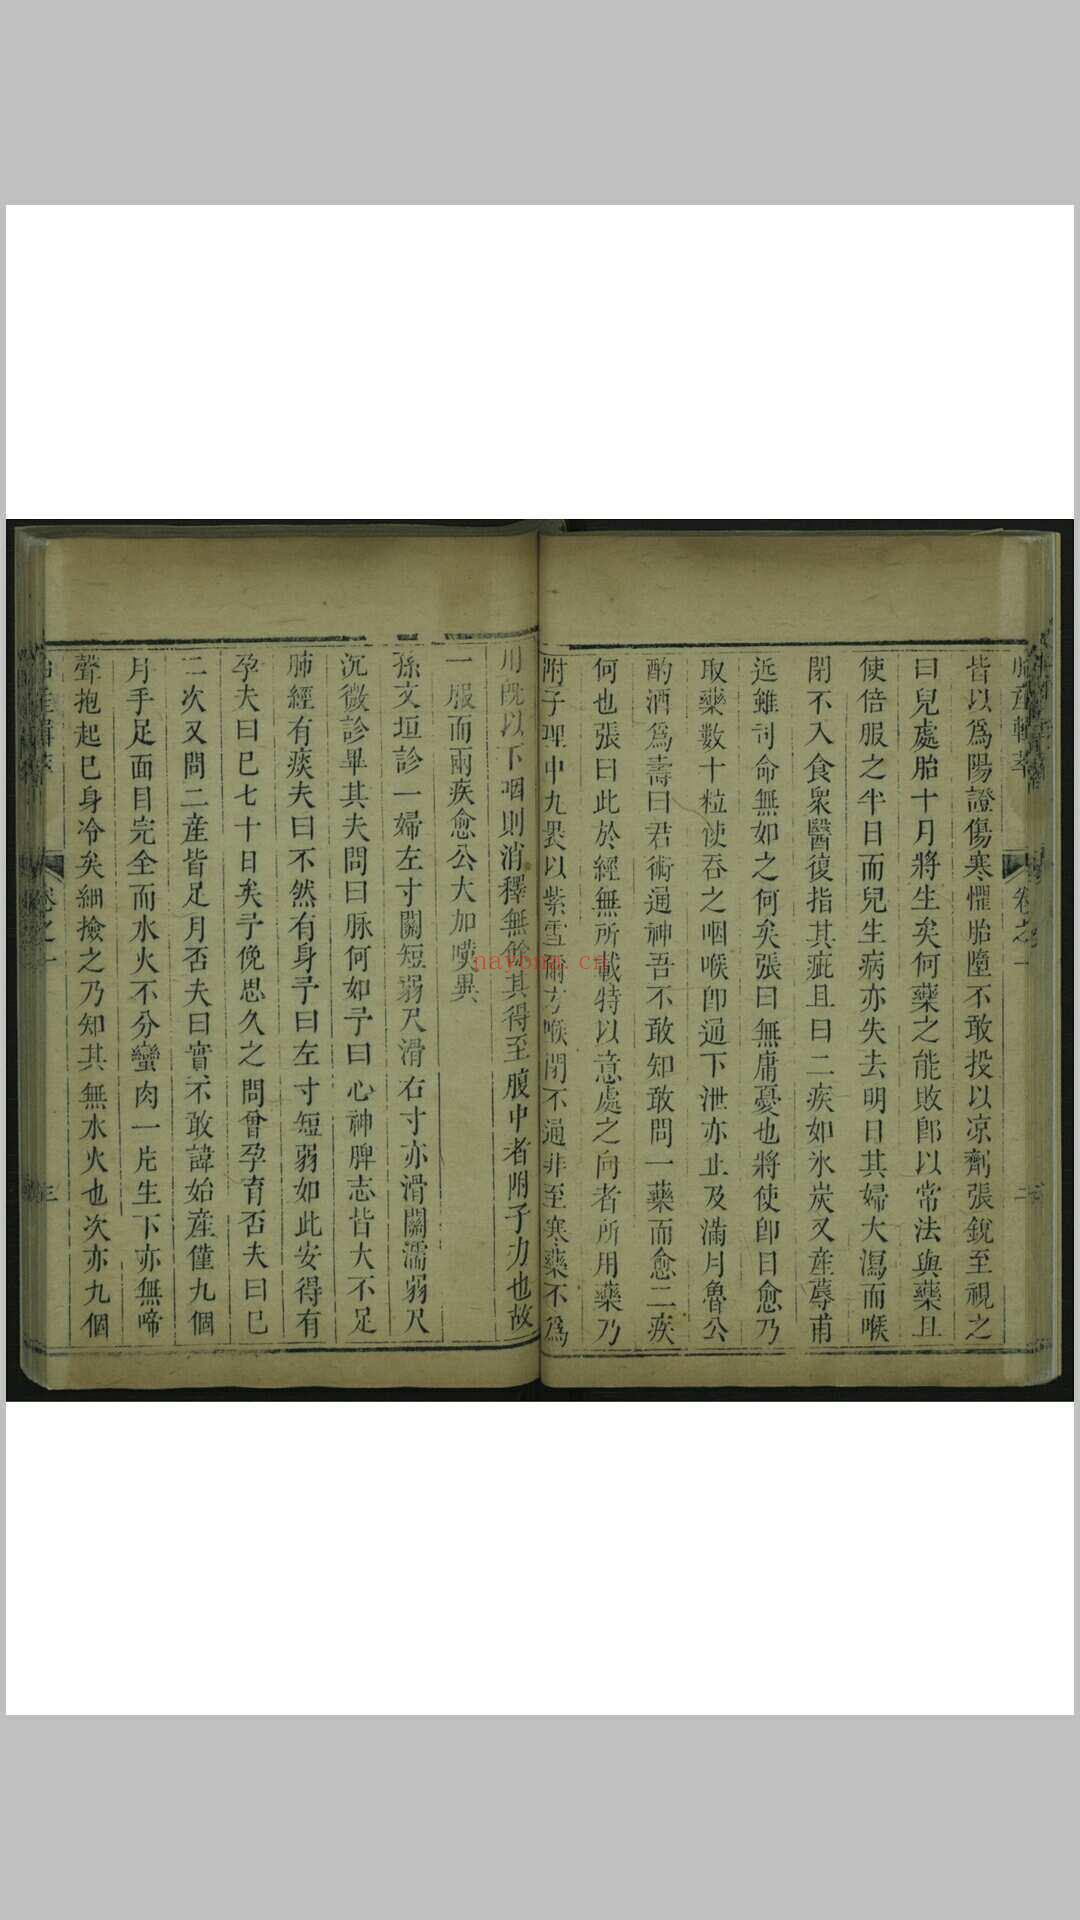 胎產輯萃 卷之一 二
皆以爲陽證傷寒懼胎墮不敢投以凉劑張銳至視之
曰兒處胎十月將生矣何藥之能敗卽以常法與藥且
使倍服之半日而兒生病亦失去明日其婦大瀉而喉
閉不入食衆醫復指其疵且曰二疾如氷炭又產蓐甫
近雖司命無如之何矣張曰無庸憂也將使卽日愈乃
取藥數十粒使吞之咽喉卽通下泄亦止及滿月魯公
酌酒爲壽曰君術通神吾不敢知敢問一藥而愈二疾
何也張曰此於經無所載特以意處之向者所用藥乃
附子理中丸裹以紫雪爾方喉閉不通非至寒藥不爲
用旣以下咽則消釋無餘其得至腹中者附子力也故
一服而兩疾愈公大加嘆異
孫文垣診一婦左寸關短弱尺滑右寸亦滑關濡弱尺
沉微診畢其夫問曰脉何如予曰心神脾志皆大不足
肺經有痰夫曰不然有身予曰左寸短弱如此安得有
孕夫曰已七十日矣予俛思久之問曾孕育否夫曰已
二次又問二產皆足月否夫曰實不敢諱始產僅九個
月手足面目完全而水火不分蠻肉一片生下亦無啼
聲抱起已身冷矣細撿之乃知其無水火也次亦九個
胎產輯萃 卷之一 三
nayona.cn